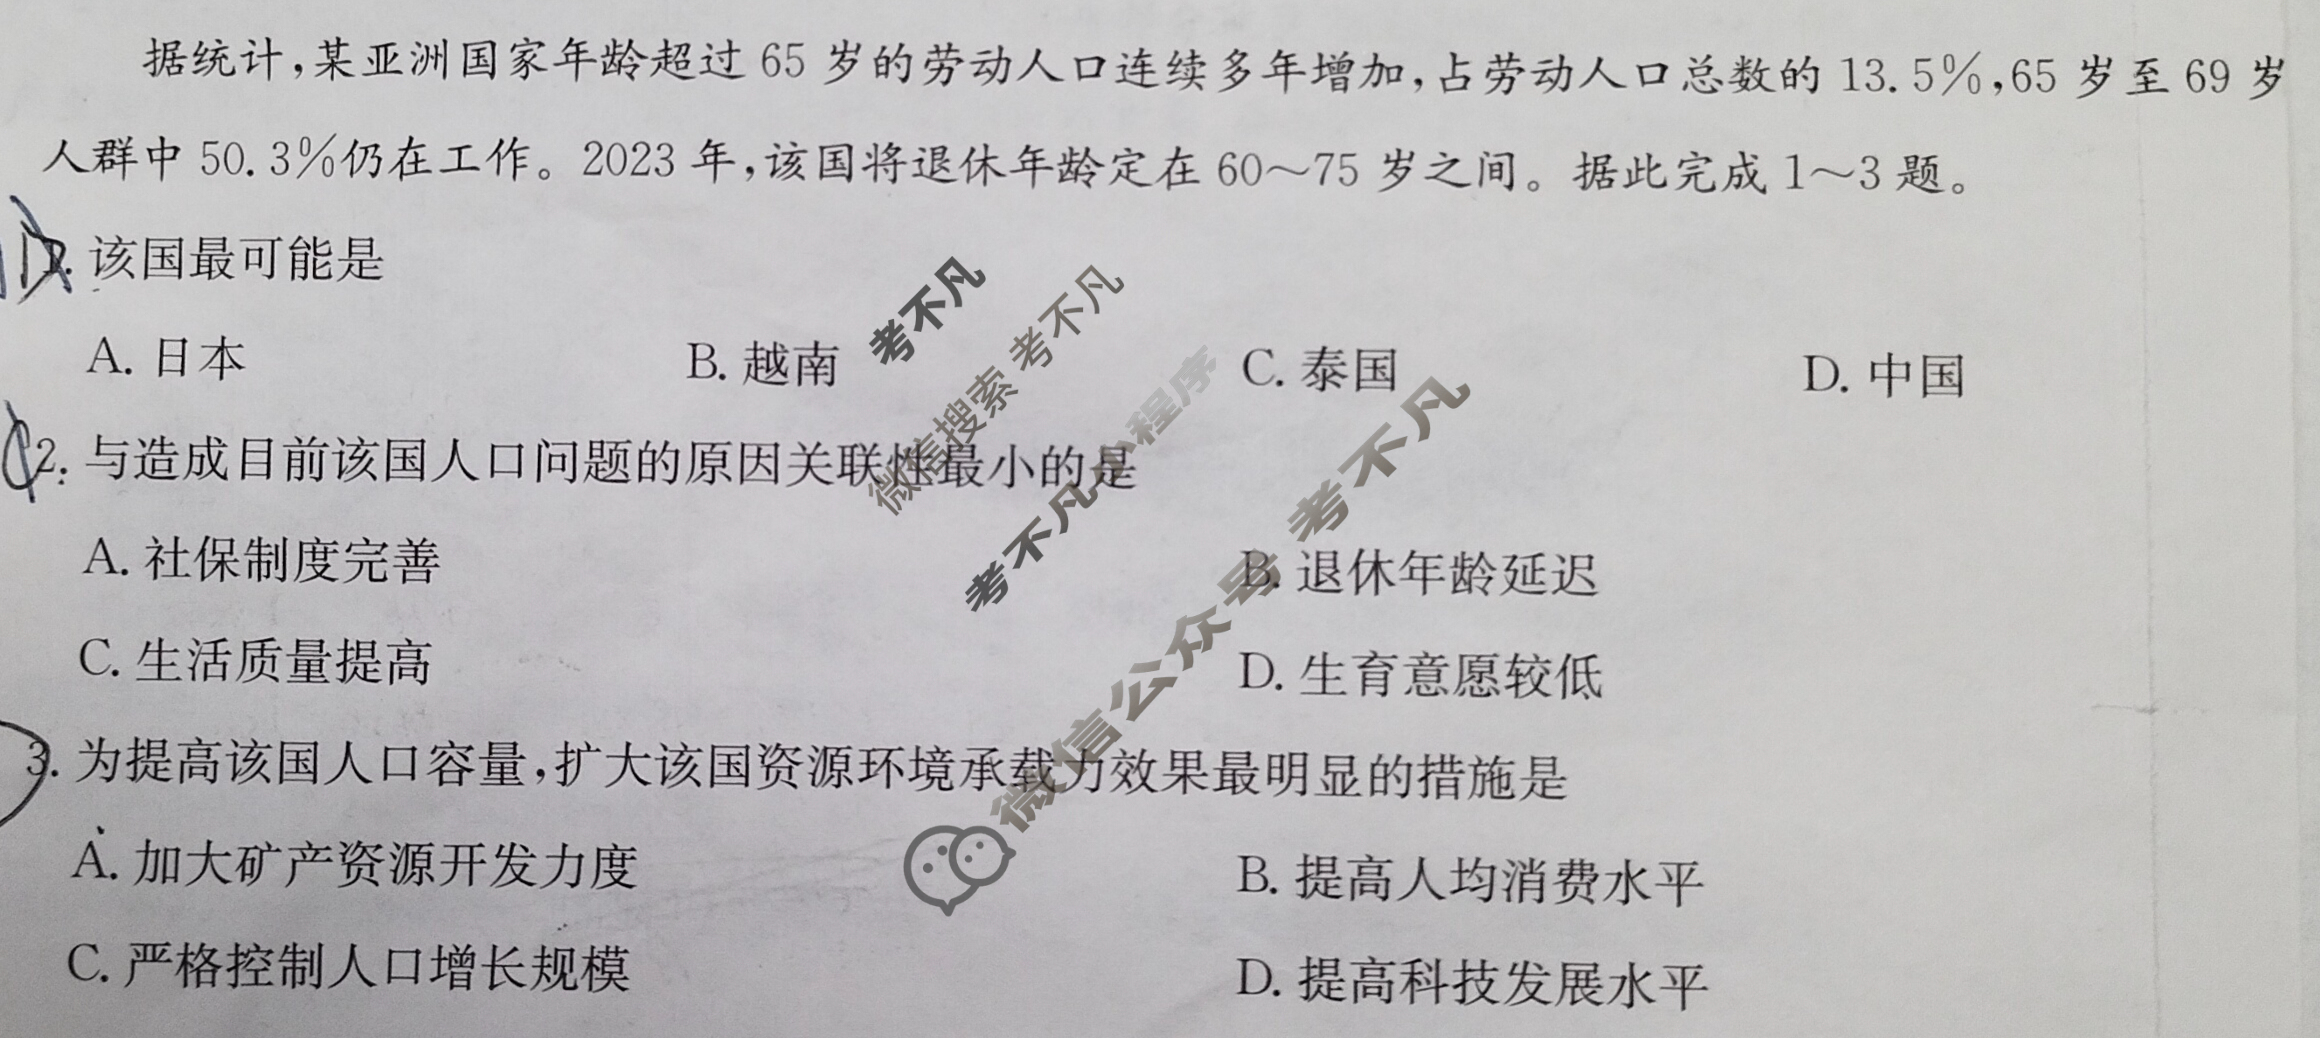 据统计,某亚洲国家年龄超过 65 岁的劳动人口连续多年增加,占劳动人口总数的 13.5%,65 岁至 69 岁
人群中 50.3%仍在工作。2023 年,该国将退休年龄定在 60~75 岁之间。据此完成 1~3 题。
1. 该国最可能是
A. 日本 B. 越南 C. 泰国 D. 中国
2. 与造成目前该国人口问题的原因关联性最小的是
A. 社保制度完善 B. 退休年龄延迟
C. 生活质量提高 D. 生育意愿较低
3. 为提高该国人口容量,扩大该国资源环境承载力效果最明显的措施是
A. 加大矿产资源开发力度 B. 提高人均消费水平
C. 严格控制人口增长规模 D. 提高科技发展水平
考不凡
微信搜索 考不凡
考不凡小程序
微信公众号 考不凡